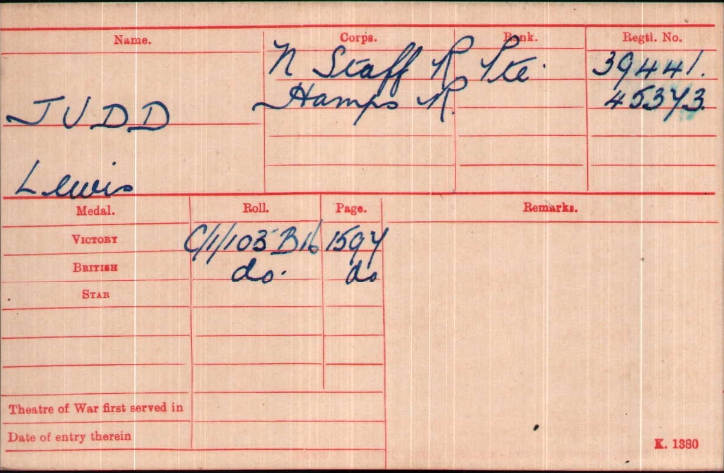 Name. Corps. Rank. Regtl. No.
N Staff R Pte. 39441.
Hamps R. 45373.
JUDD
Lewis
Medal. Roll. Page. Remarks.
VICTORY C/1/103 B16 1597
BRITISH do. do
STAR
Theatre of War first served in
Date of entry therein
K. 1380